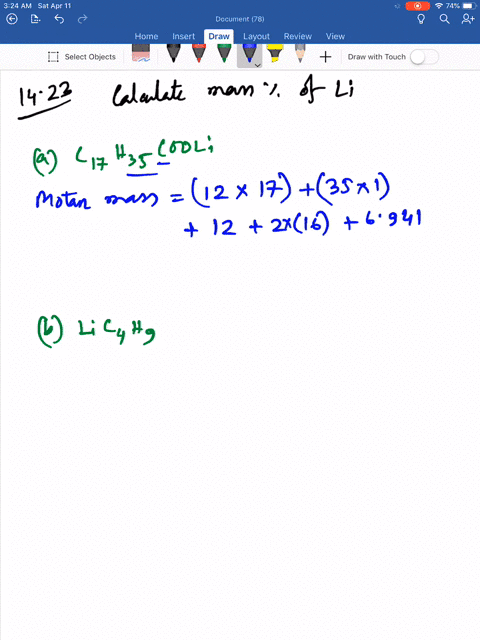 3:24 AM Sat Apr 11
74%
Document (78)
Home Insert Draw Layout Review View
Select Objects
Draw with Touch
14.23 Calculate mass % of Li
(a) C17 H35 COOLi
Molar mass = (12 × 17) + (35 × 1)
+ 12 + 2×(16) + 6.941
(b) Li C4 H9